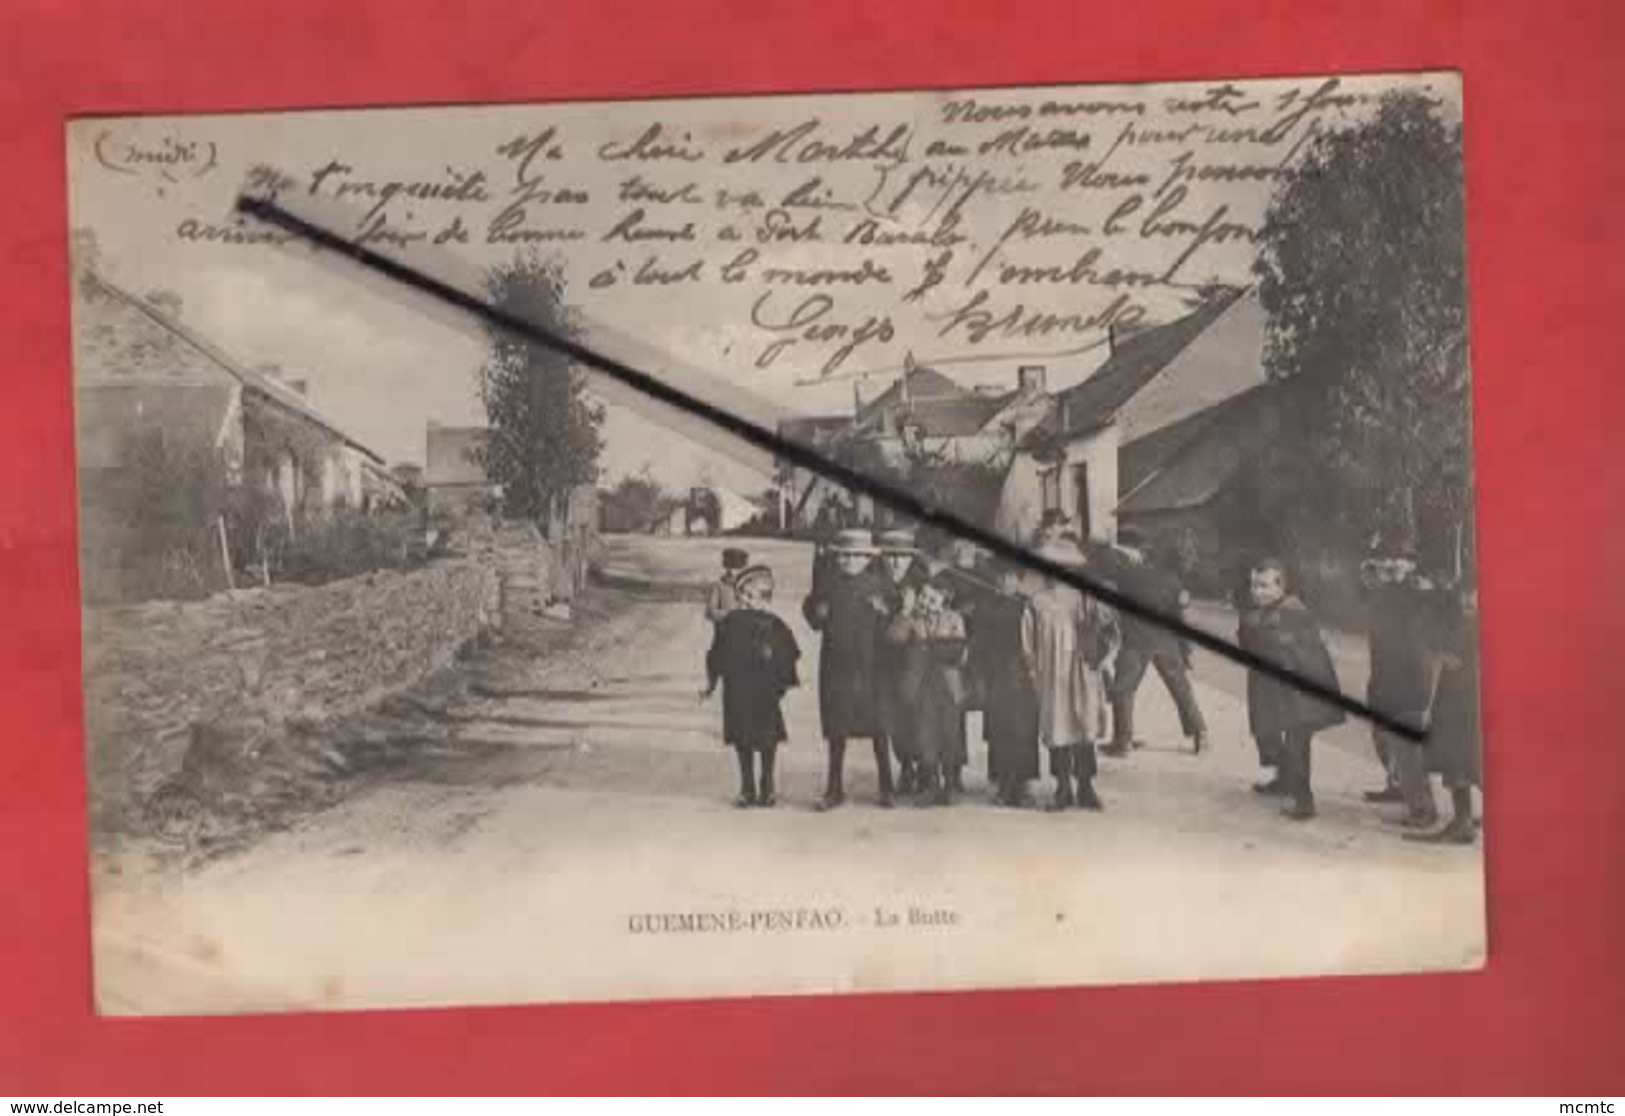 (midi)
Nous avons rester 1 jour
Ma chére Marthe au Mans pour une
t'inquiète pas tout va bien pippée Nous pensons
arriver soir de bonne heure à Port Baralo. Pren le bonjour
à tout le monde J t'embrasse
Georges Brunel
GUEMENE-PENFAO. - La Butte
www.delcampe.net
mcmtc